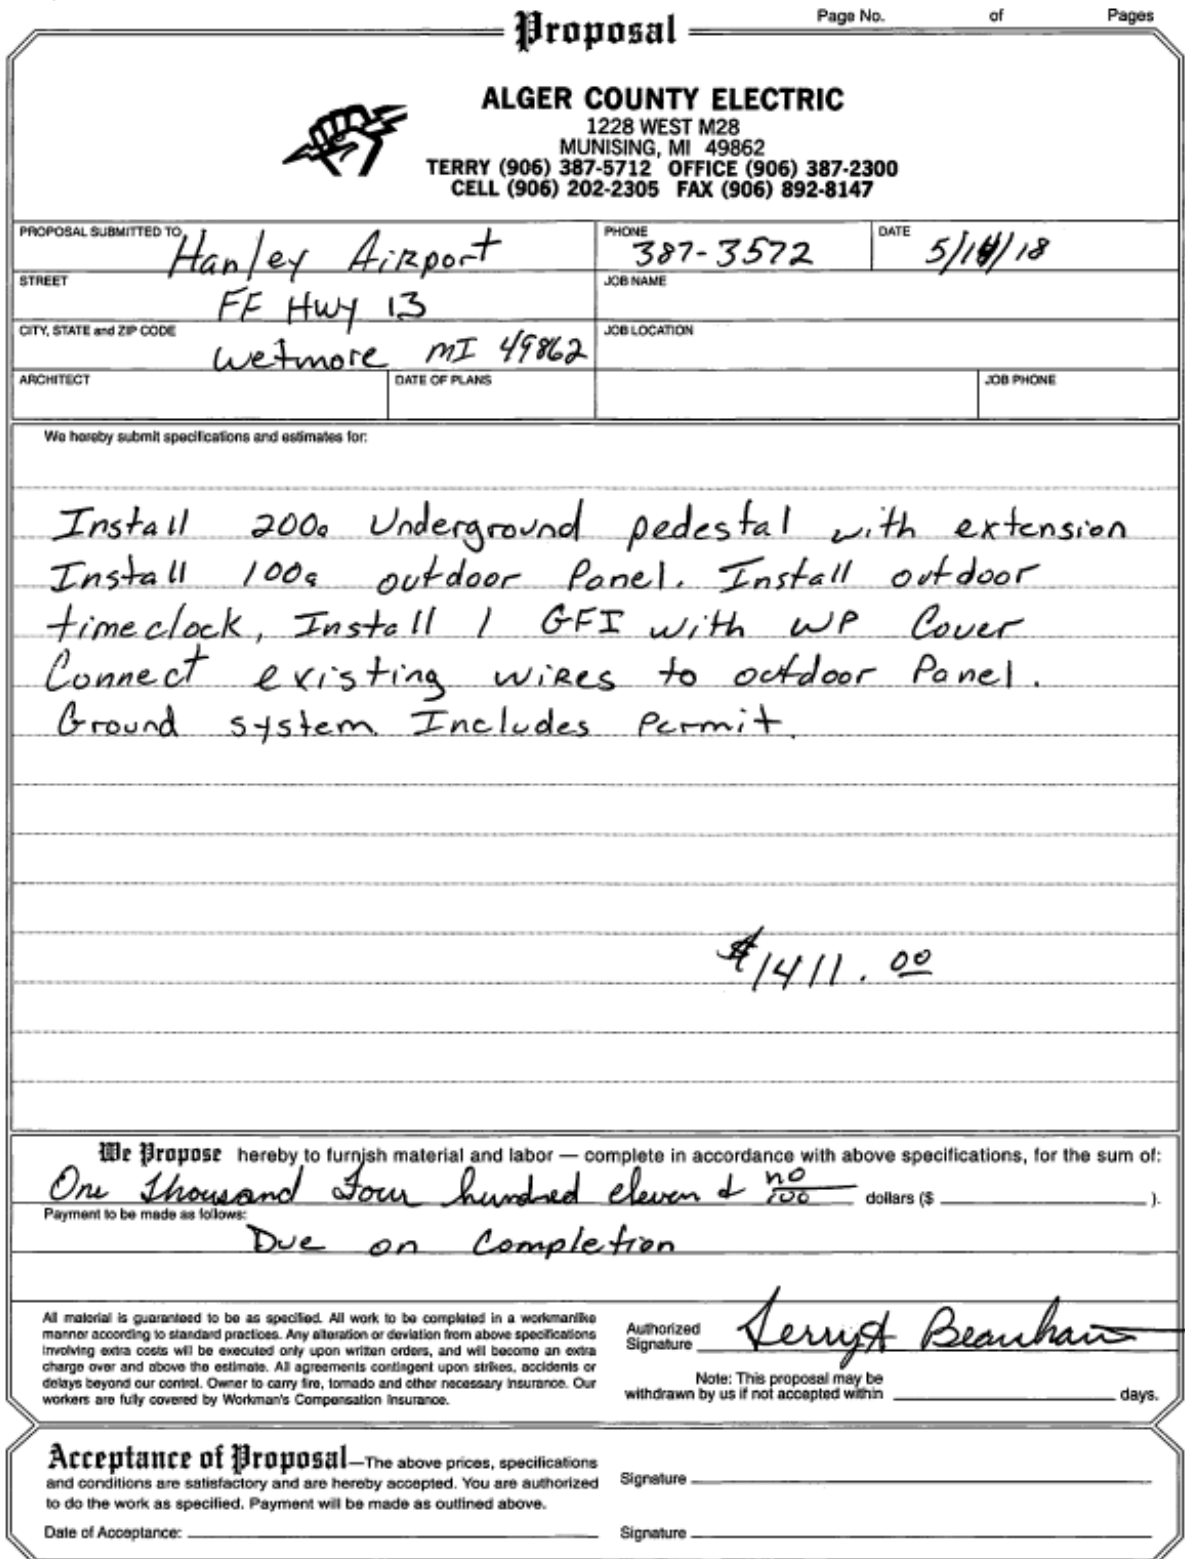 Page No. of Pages
Proposal
ALGER COUNTY ELECTRIC
1228 WEST M28
MUNISING, MI 49862
TERRY (906) 387-5712 OFFICE (906) 387-2300
CELL (906) 202-2305 FAX (906) 892-8147
PROPOSAL SUBMITTED TO Hanley Airport
PHONE 387-3572
DATE 5/ /18
STREET FF Hwy 13
JOB NAME
CITY, STATE and ZIP CODE Wetmore MI 49862
JOB LOCATION
ARCHITECT
DATE OF PLANS
JOB PHONE
We hereby submit specifications and estimates for:
Install 200a Underground pedestal with extension
Install 100a outdoor Panel. Install outdoor
timeclock, Install 1 GFI with WP Cover
Connect existing wires to outdoor Panel.
Ground system. Includes Permit.
$1411.00
We Propose hereby to furnish material and labor — complete in accordance with above specifications, for the sum of:
One Thousand Four hundred eleven & no/100 dollars ($ ).
Payment to be made as follows:
Due on Completion
All material is guaranteed to be as specified. All work to be completed in a workmanlike
manner according to standard practices. Any alteration or deviation from above specifications
involving extra costs will be executed only upon written orders, and will become an extra
charge over and above the estimate. All agreements contingent upon strikes, accidents or
delays beyond our control. Owner to carry fire, tornado and other necessary insurance. Our
workers are fully covered by Workman's Compensation Insurance.
Authorized
Signature Terry A
Note: This proposal may be
withdrawn by us if not accepted within days.
Acceptance of Proposal—The above prices, specifications
and conditions are satisfactory and are hereby accepted. You are authorized
to do the work as specified. Payment will be made as outlined above.
Date of Acceptance:
Signature
Signature